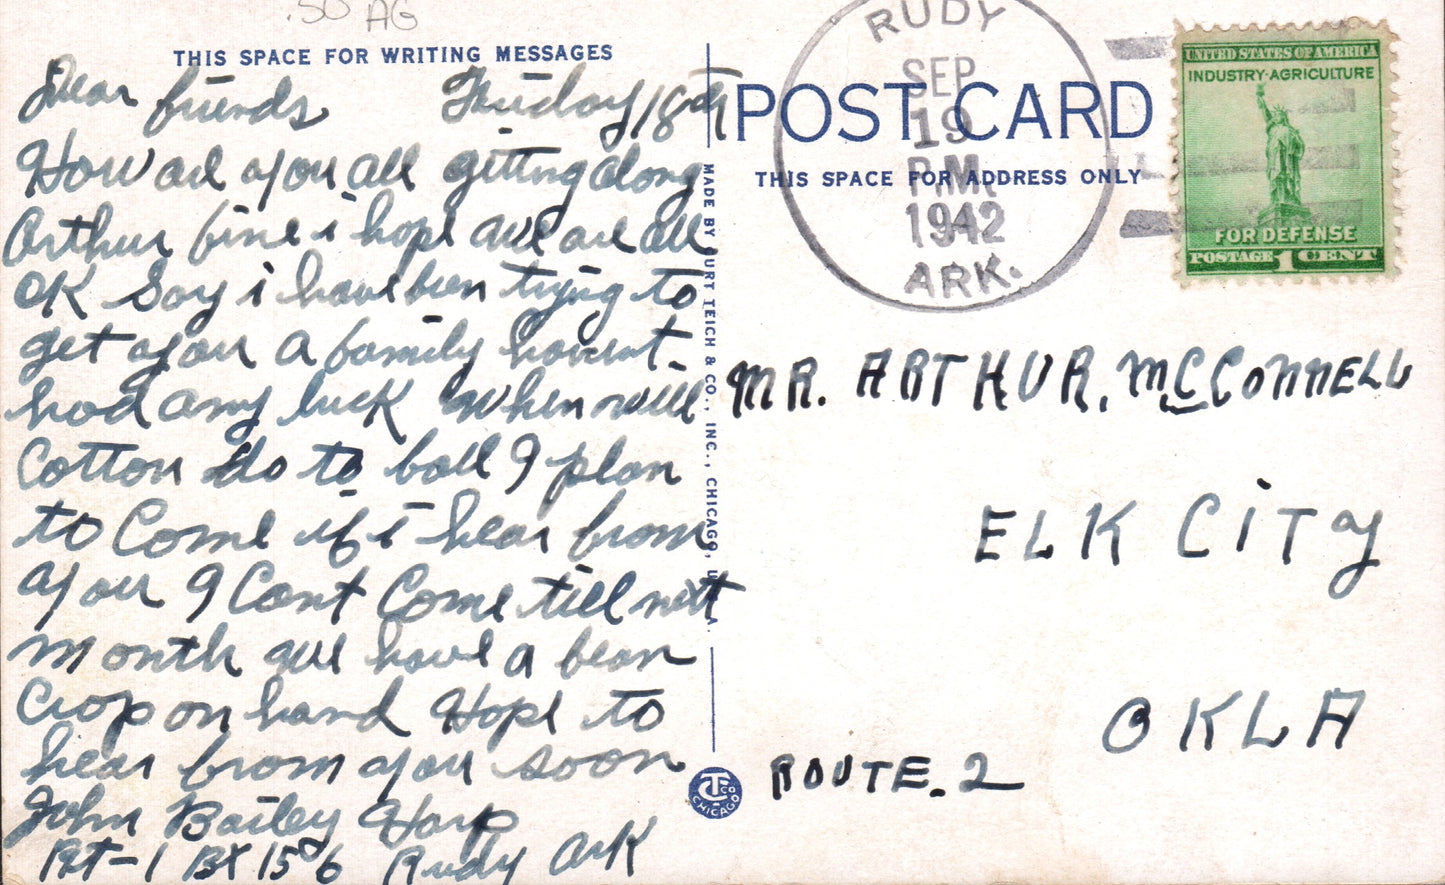 .50 AG
THIS SPACE FOR WRITING MESSAGES
Dear friends Friday 18th
How are you all getting along
Arthur fine i hope we are all
OK Say i have been trying to
get you a family havent
had any luck When will
Cotton do to ball I plan
to Come if i hear from
you I Cant Come till next
month we have a bean
Crop on hand Hope to
hear from you soon
John Bailey Harp
Rt-1 BX 156 Rudy Ark
MADE BY CURT TEICH & CO., INC., CHICAGO, U.S.A.
CT CO
CHICAGO
POST CARD
THIS SPACE FOR ADDRESS ONLY
RUDY
SEP
19
P.M.
1942
ARK.
UNITED STATES OF AMERICA
INDUSTRY·AGRICULTURE
FOR DEFENSE
POSTAGE 1 CENT
MR. ARTHUR, McCONNELL
ELK CiTy
OKLA
ROUTE. 2